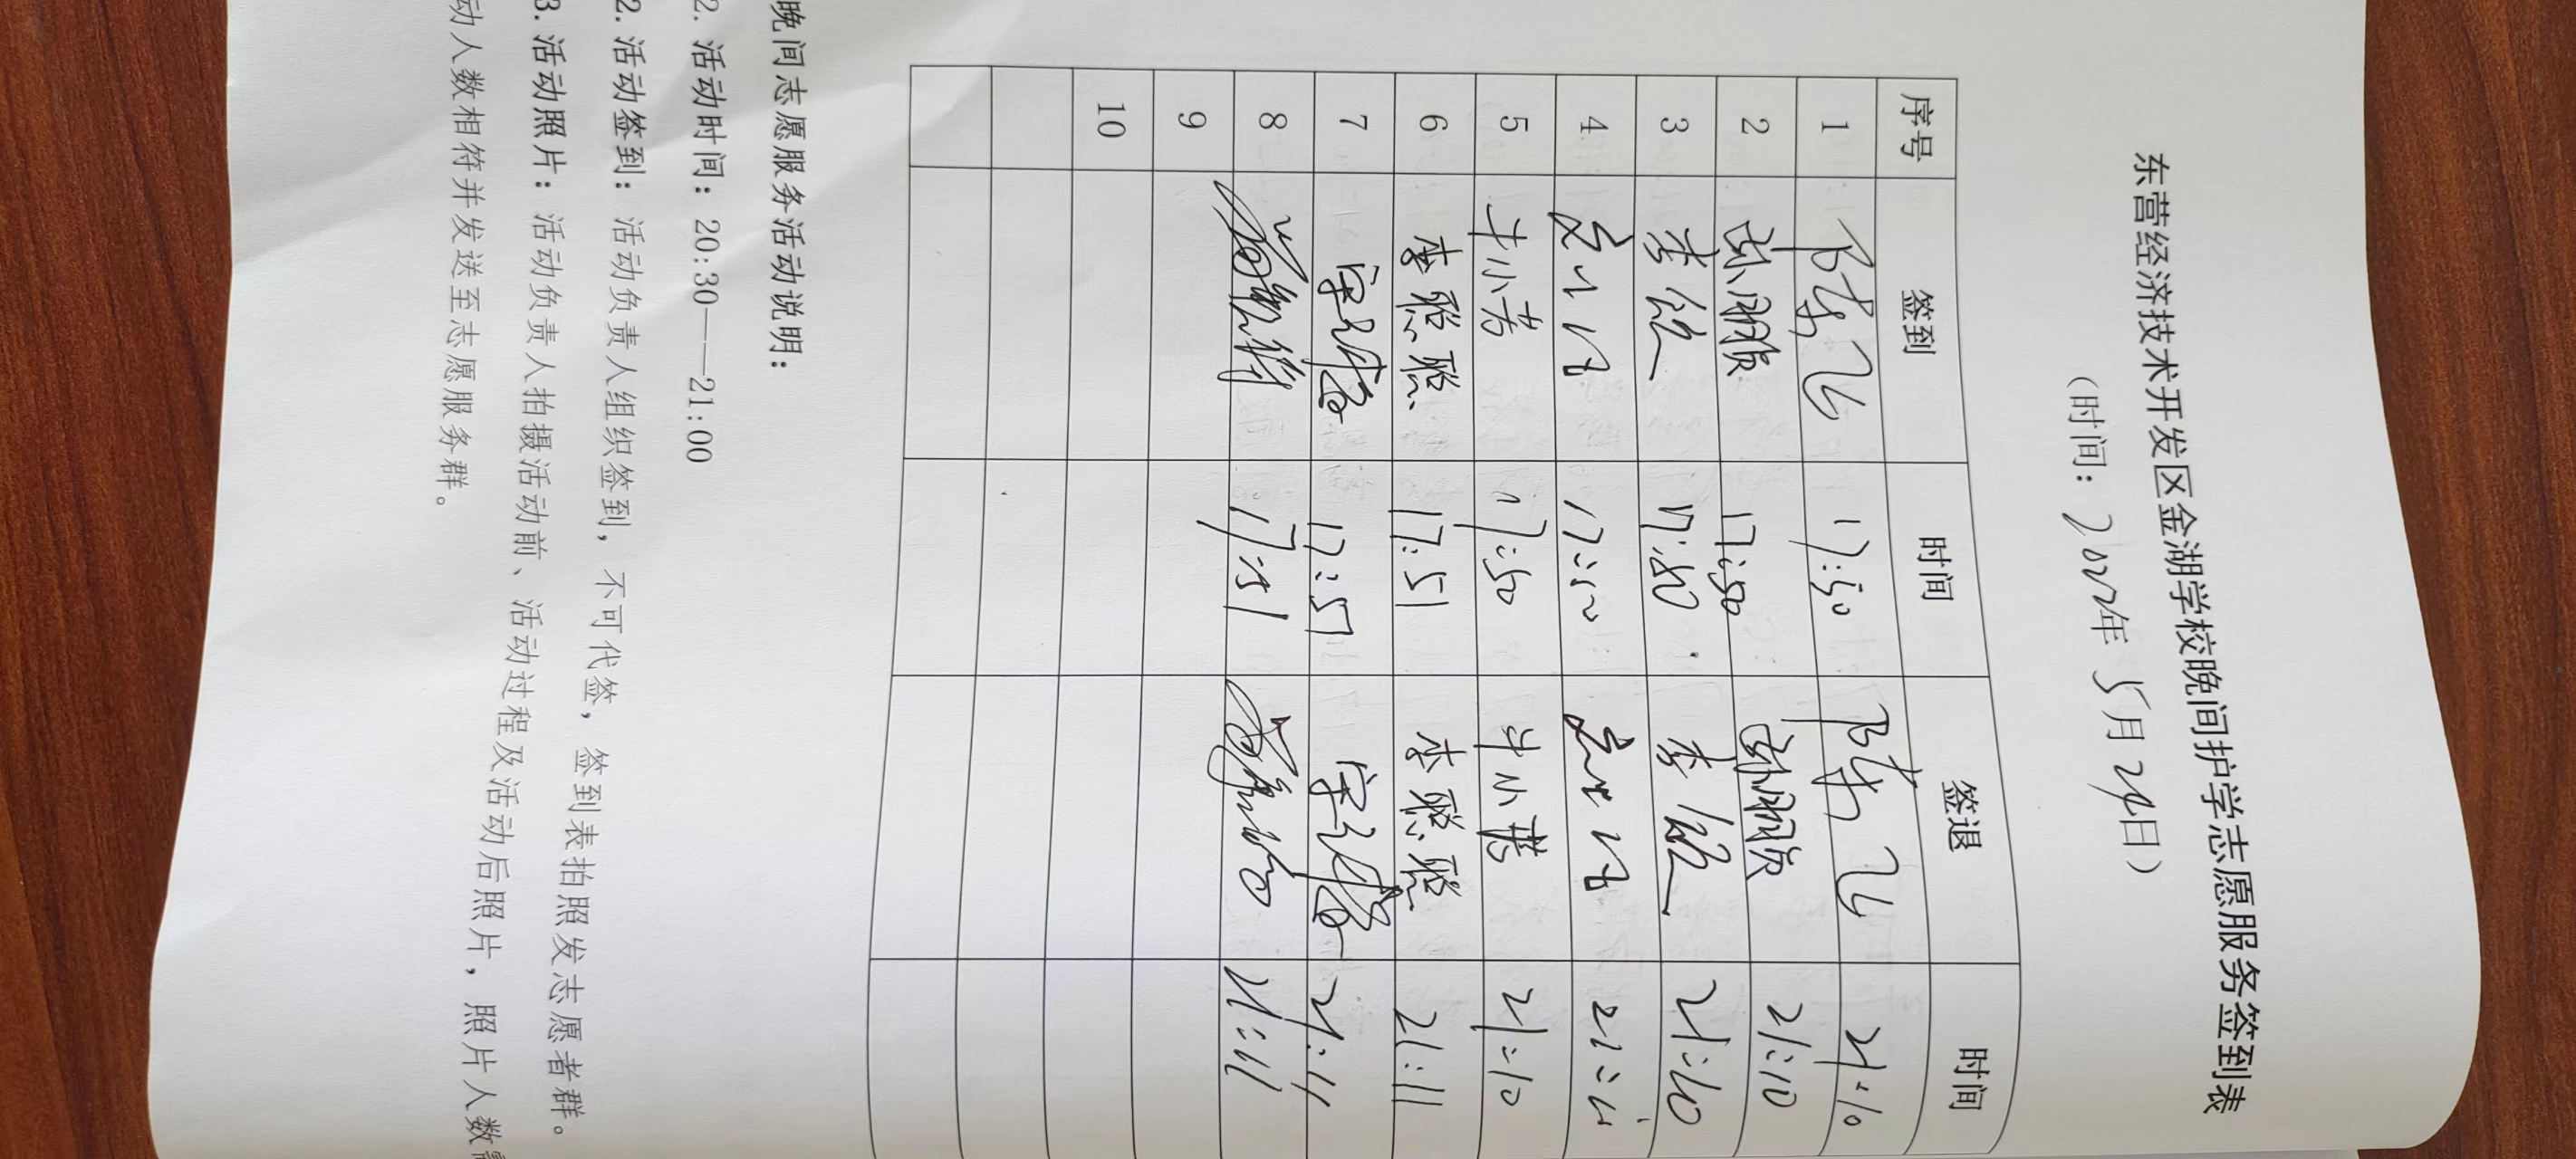 东营经济技术开发区金湖学校晚间护学志愿服务签到表
（时间：2022年5月24日）
序号 签到 时间 签退 时间
1 陈飞 17:50 陈飞 21:10
2 17:50 21:10
3 李欣 17:50 李欣 21:10
4 17:50 21:10
5 17:50 21:10
6 李聪聪 17:51 李聪聪 21:11
7 17:51 21:11
8 17:51 21:11
9
10
晚间志愿服务活动说明：
2. 活动时间：20:30——21:00
2. 活动签到：活动负责人组织签到，不可代签，签到表拍照发志愿者群。
3. 活动照片：活动负责人拍摄活动前、活动过程及活动后照片，照片人数
动人数相符并发送至志愿服务群。